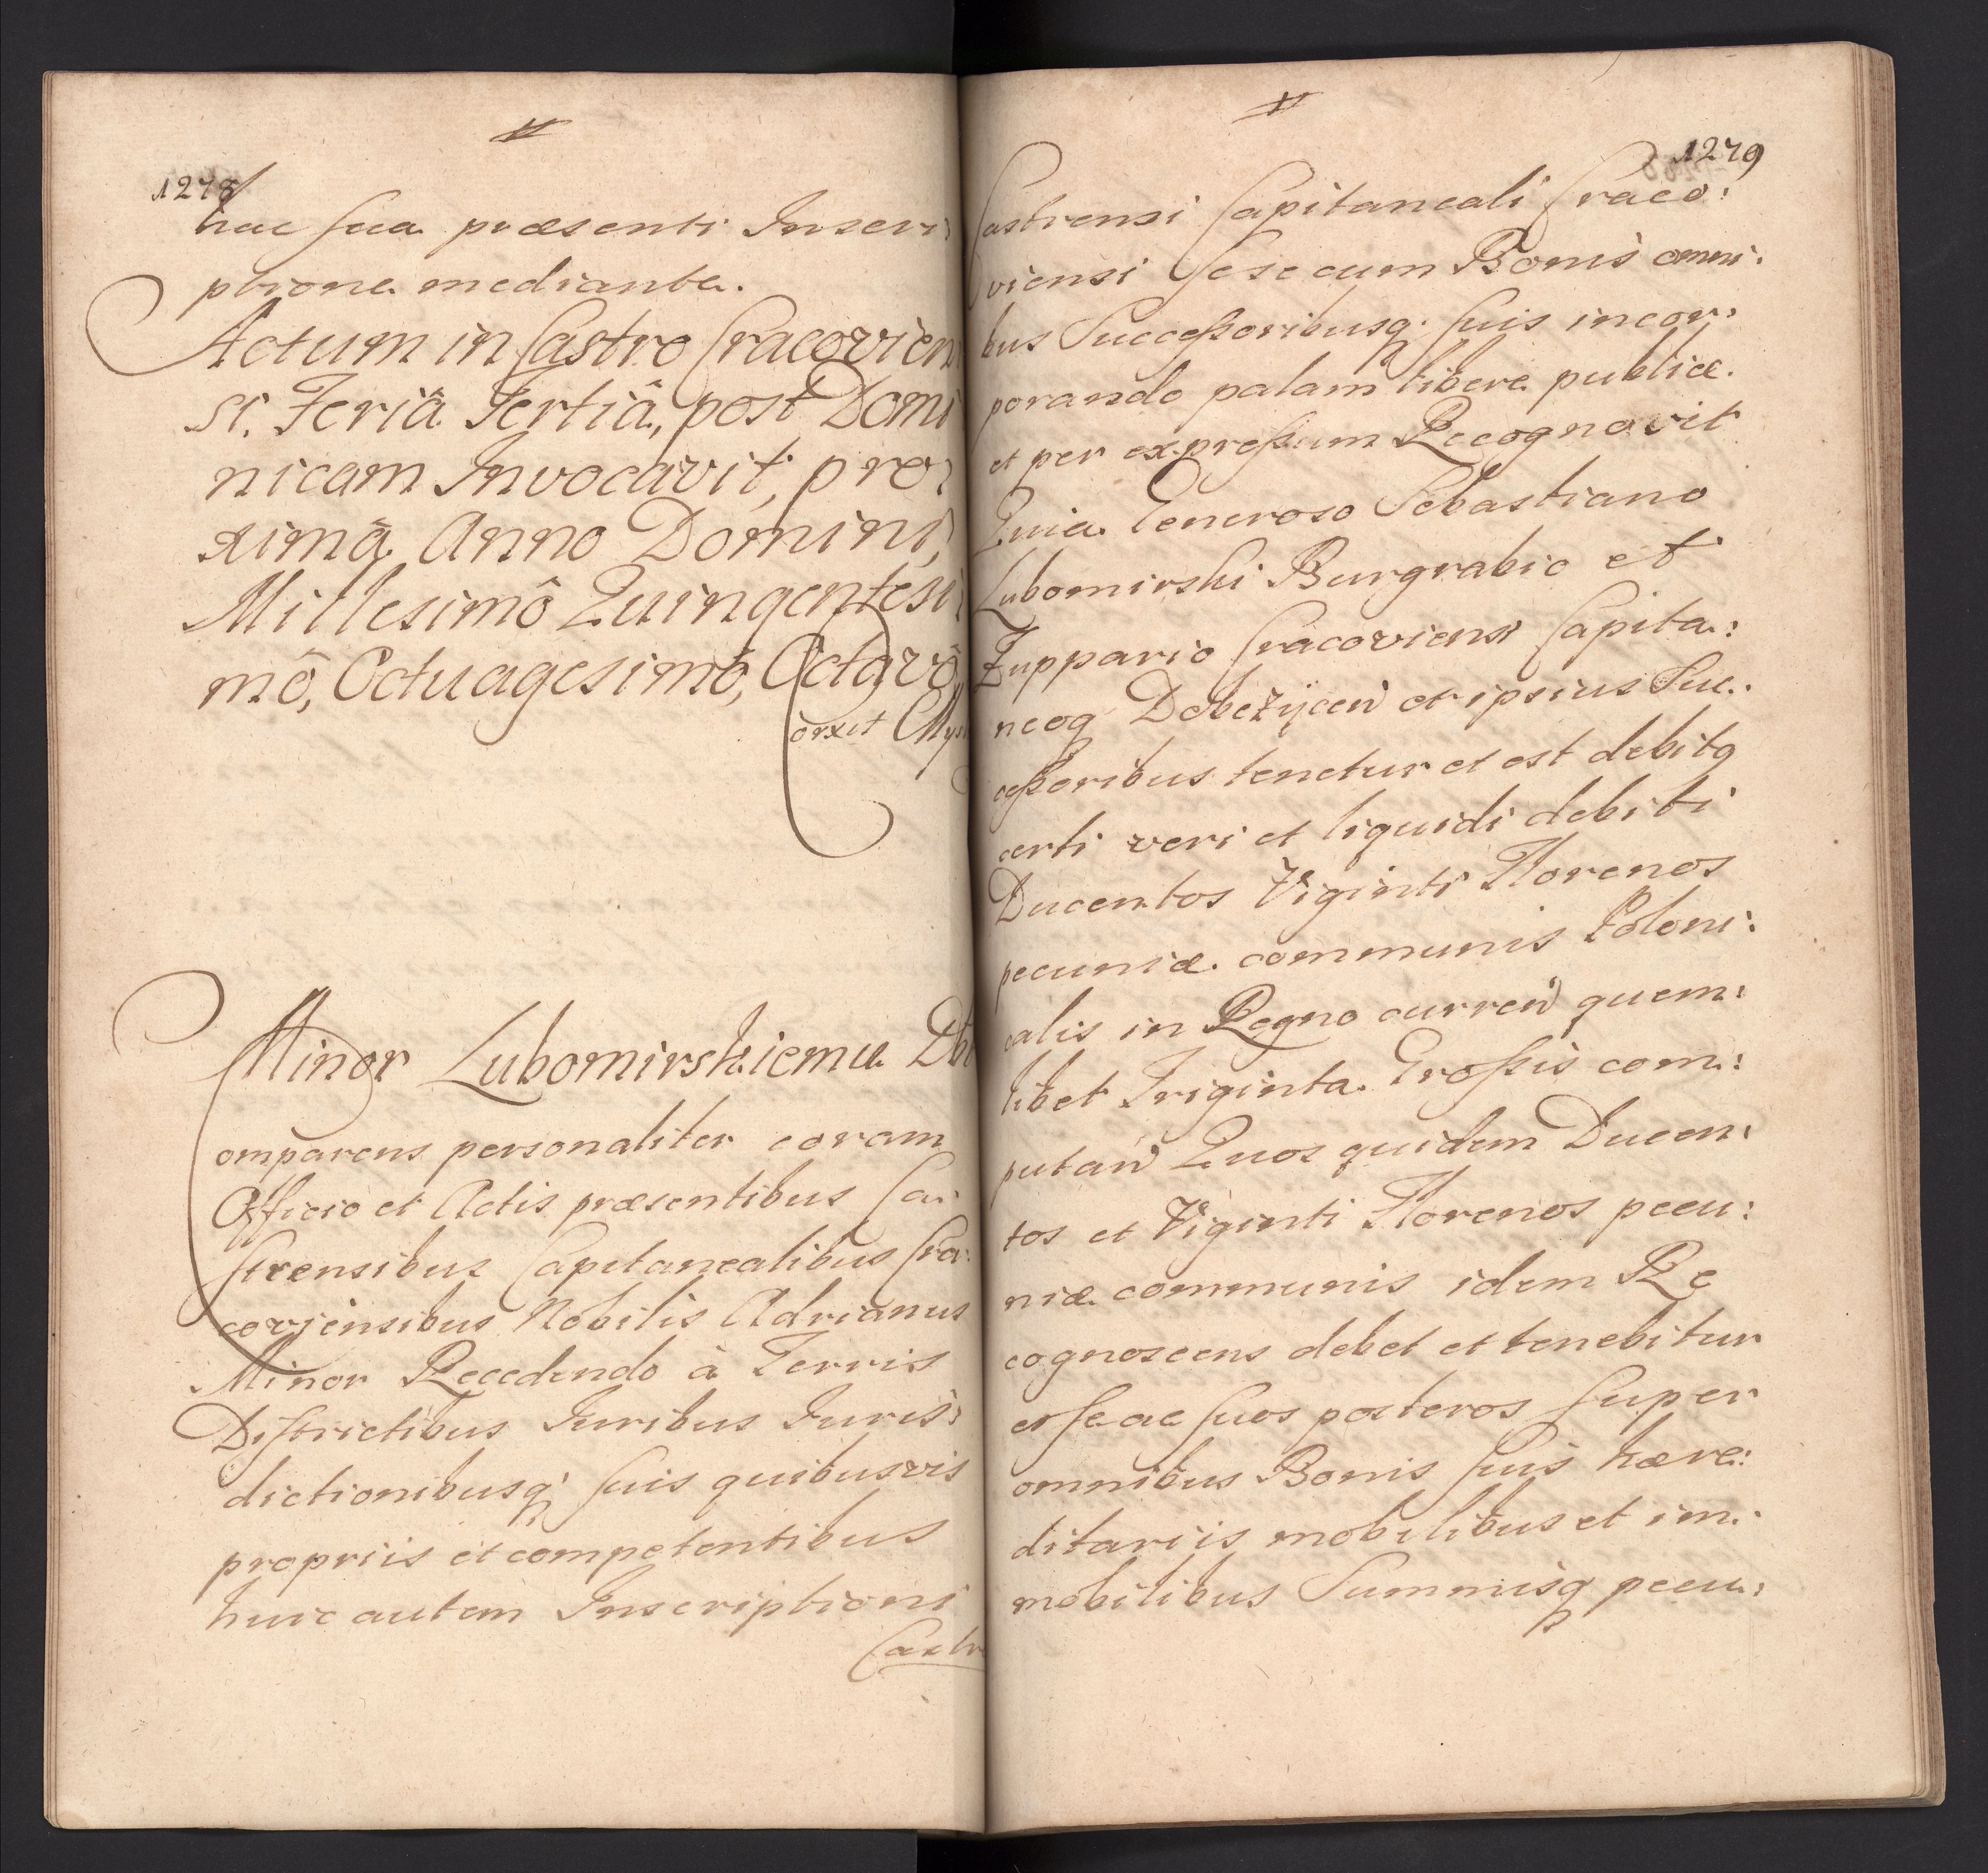 1278
hac sua præsenti Inscri:
ptione mediante.
Actum in Castro Cracovien
si, Feriâ Tertiâ, post Domi
nicam Invocavit, pro:
ximâ, Anno Domini,
Millesimô Quingentesi
mô, Octuagesimô, Octavô
Minor Lubomirskiemu
omparens personaliter coram
Officio et Actis præsentibus Ca:
strensibus Capitanealibus Cra:
coviensibus Nobilis Adrianus
Minor Recedendo à Terris
Districtibus Iuribus Iuris:
dictionibusq; suis quibusvis
propriis et competentibus
huic autem Inscriptioni
Castre
1279
Castrensi Capitaneali Craco:
viensi sese cum Bonis omni:
bus Successoribusq; suis incor:
porando palam libere publice.
et per expressum Recognovit
Quia Generoso Sebastiano
Lubomirski Burgrabio et
Zuppario Cracoviensi Capita:
neoq Dobczÿcen et ipsius Suc:
cessoribus tenetur et est debitq
certi veri et liquidi debiti
Ducentos Viginti Florenos
pecuniæ communis Poloni:
calis in Regno curren quem:
libet Triginta Grossis com:
putan Quos quidem Ducen:
tos et Viginti Florenos pecu:
niæ communis idem Re
cognoscens debet et tenebitur
et se ac suos posteros super
omnibus Bonis suis hære:
ditariis mobilibus et im:
mobilibus Summisq pecu: